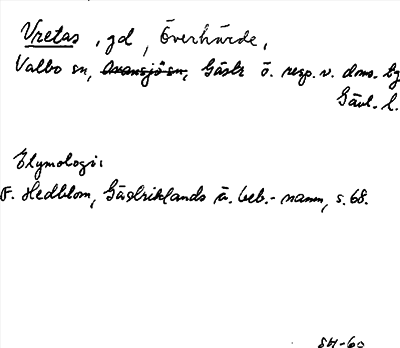 Vretas, gd, Överhärde,
Valbo sn, Ovansjö sn, Gästr ö. resp. v. dms. by
Gävl. l.
Etymologi:
F. Hedblom, Gästriklands ä. beb.-namn, s. 68.
SH-60